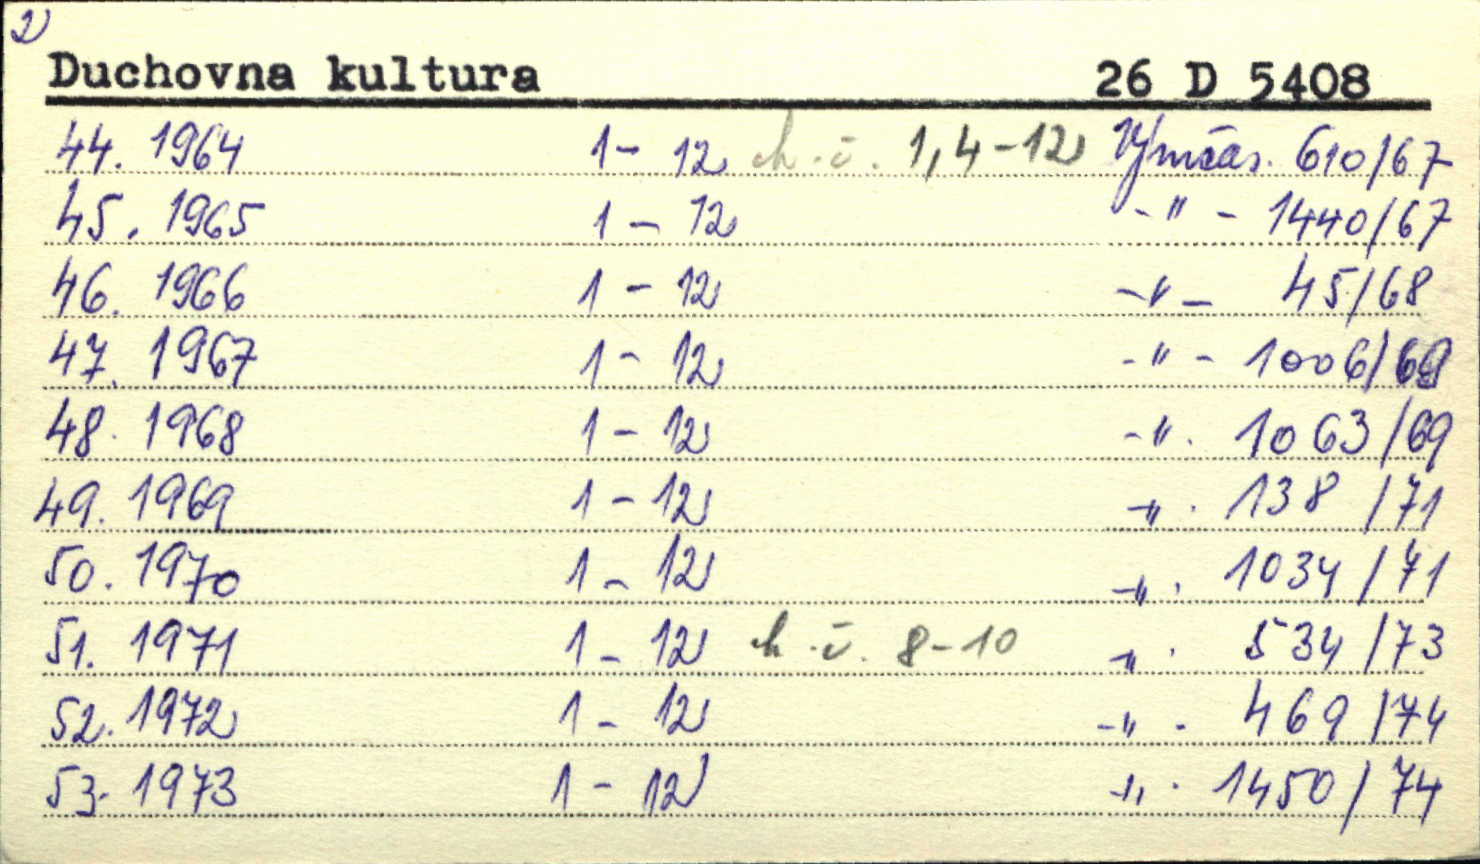 2
Duchovna kultura 26 D 5408
44. 1964 1 - 12 ch. č. 1, 4 - 12 Výmčas. 610/67
45. 1965 1 - 12 - " - 1440/67
46. 1966 1 - 12 - " - 45/68
47. 1967 1 - 12 - " - 1006/69
48. 1968 1 - 12 - " - 1063/69
49. 1969 1 - 12 - " - 138/71
50. 1970 1 - 12 - " - 1034/71
51. 1971 1 - 12 ch. č. 8 - 10 - " - 534/73
52. 1972 1 - 12 - " - 469/74
53. 1973 1 - 12 - " - 1450/74